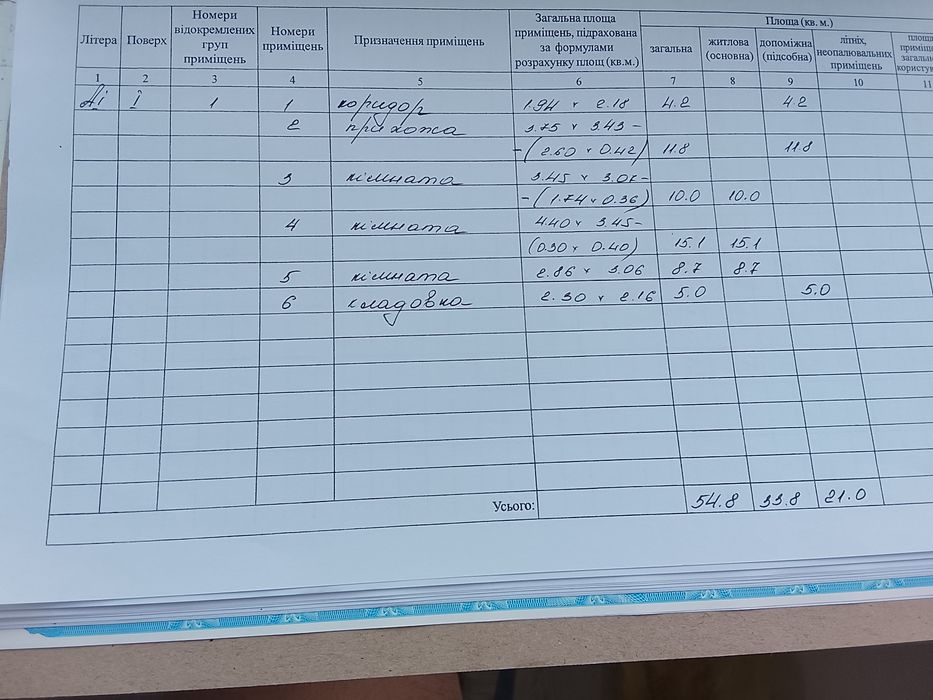 Літера Поверх Номери відокремлених груп приміщень Номери приміщень Призначення приміщень Загальна площа приміщень, підрахована за формулами розрахунку площ (кв.м.) Площа (кв. м.)
загальна житлова (основна) допоміжна (підсобна) літніх, неопалювальних приміщень
1 2 3 4 5 6 7 8 9 10 11
Аі І 1 1 коридор 1.94 х 2.18 4.2 4.2
2 прихожа 3.75 х 3.43 -
-(2.60 х 0.42) 11.8 11.8
3 кімната 3.45 х 3.07-
-(1.74 х 0.36) 10.0 10.0
4 кімната 4.40 х 3.45-
(0.30 х 0.40) 15.1 15.1
5 кімната 2.86 х 3.06 8.7 8.7
6 кладовка 2.30 х 2.16 5.0 5.0
Усього: 54.8 33.8 21.0